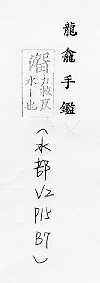 龍龕手鑑
力救反
水丨也
(水部
V2
P15
B7)